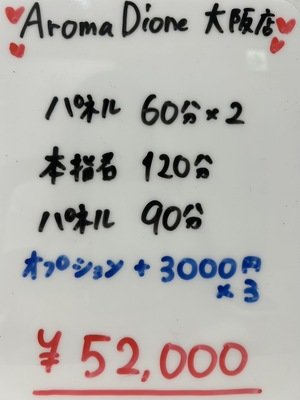 Aroma Dione 大阪店
パネル 60分×2
本指名 120分
パネル 90分
オプション + 3000円
×3
¥52,000